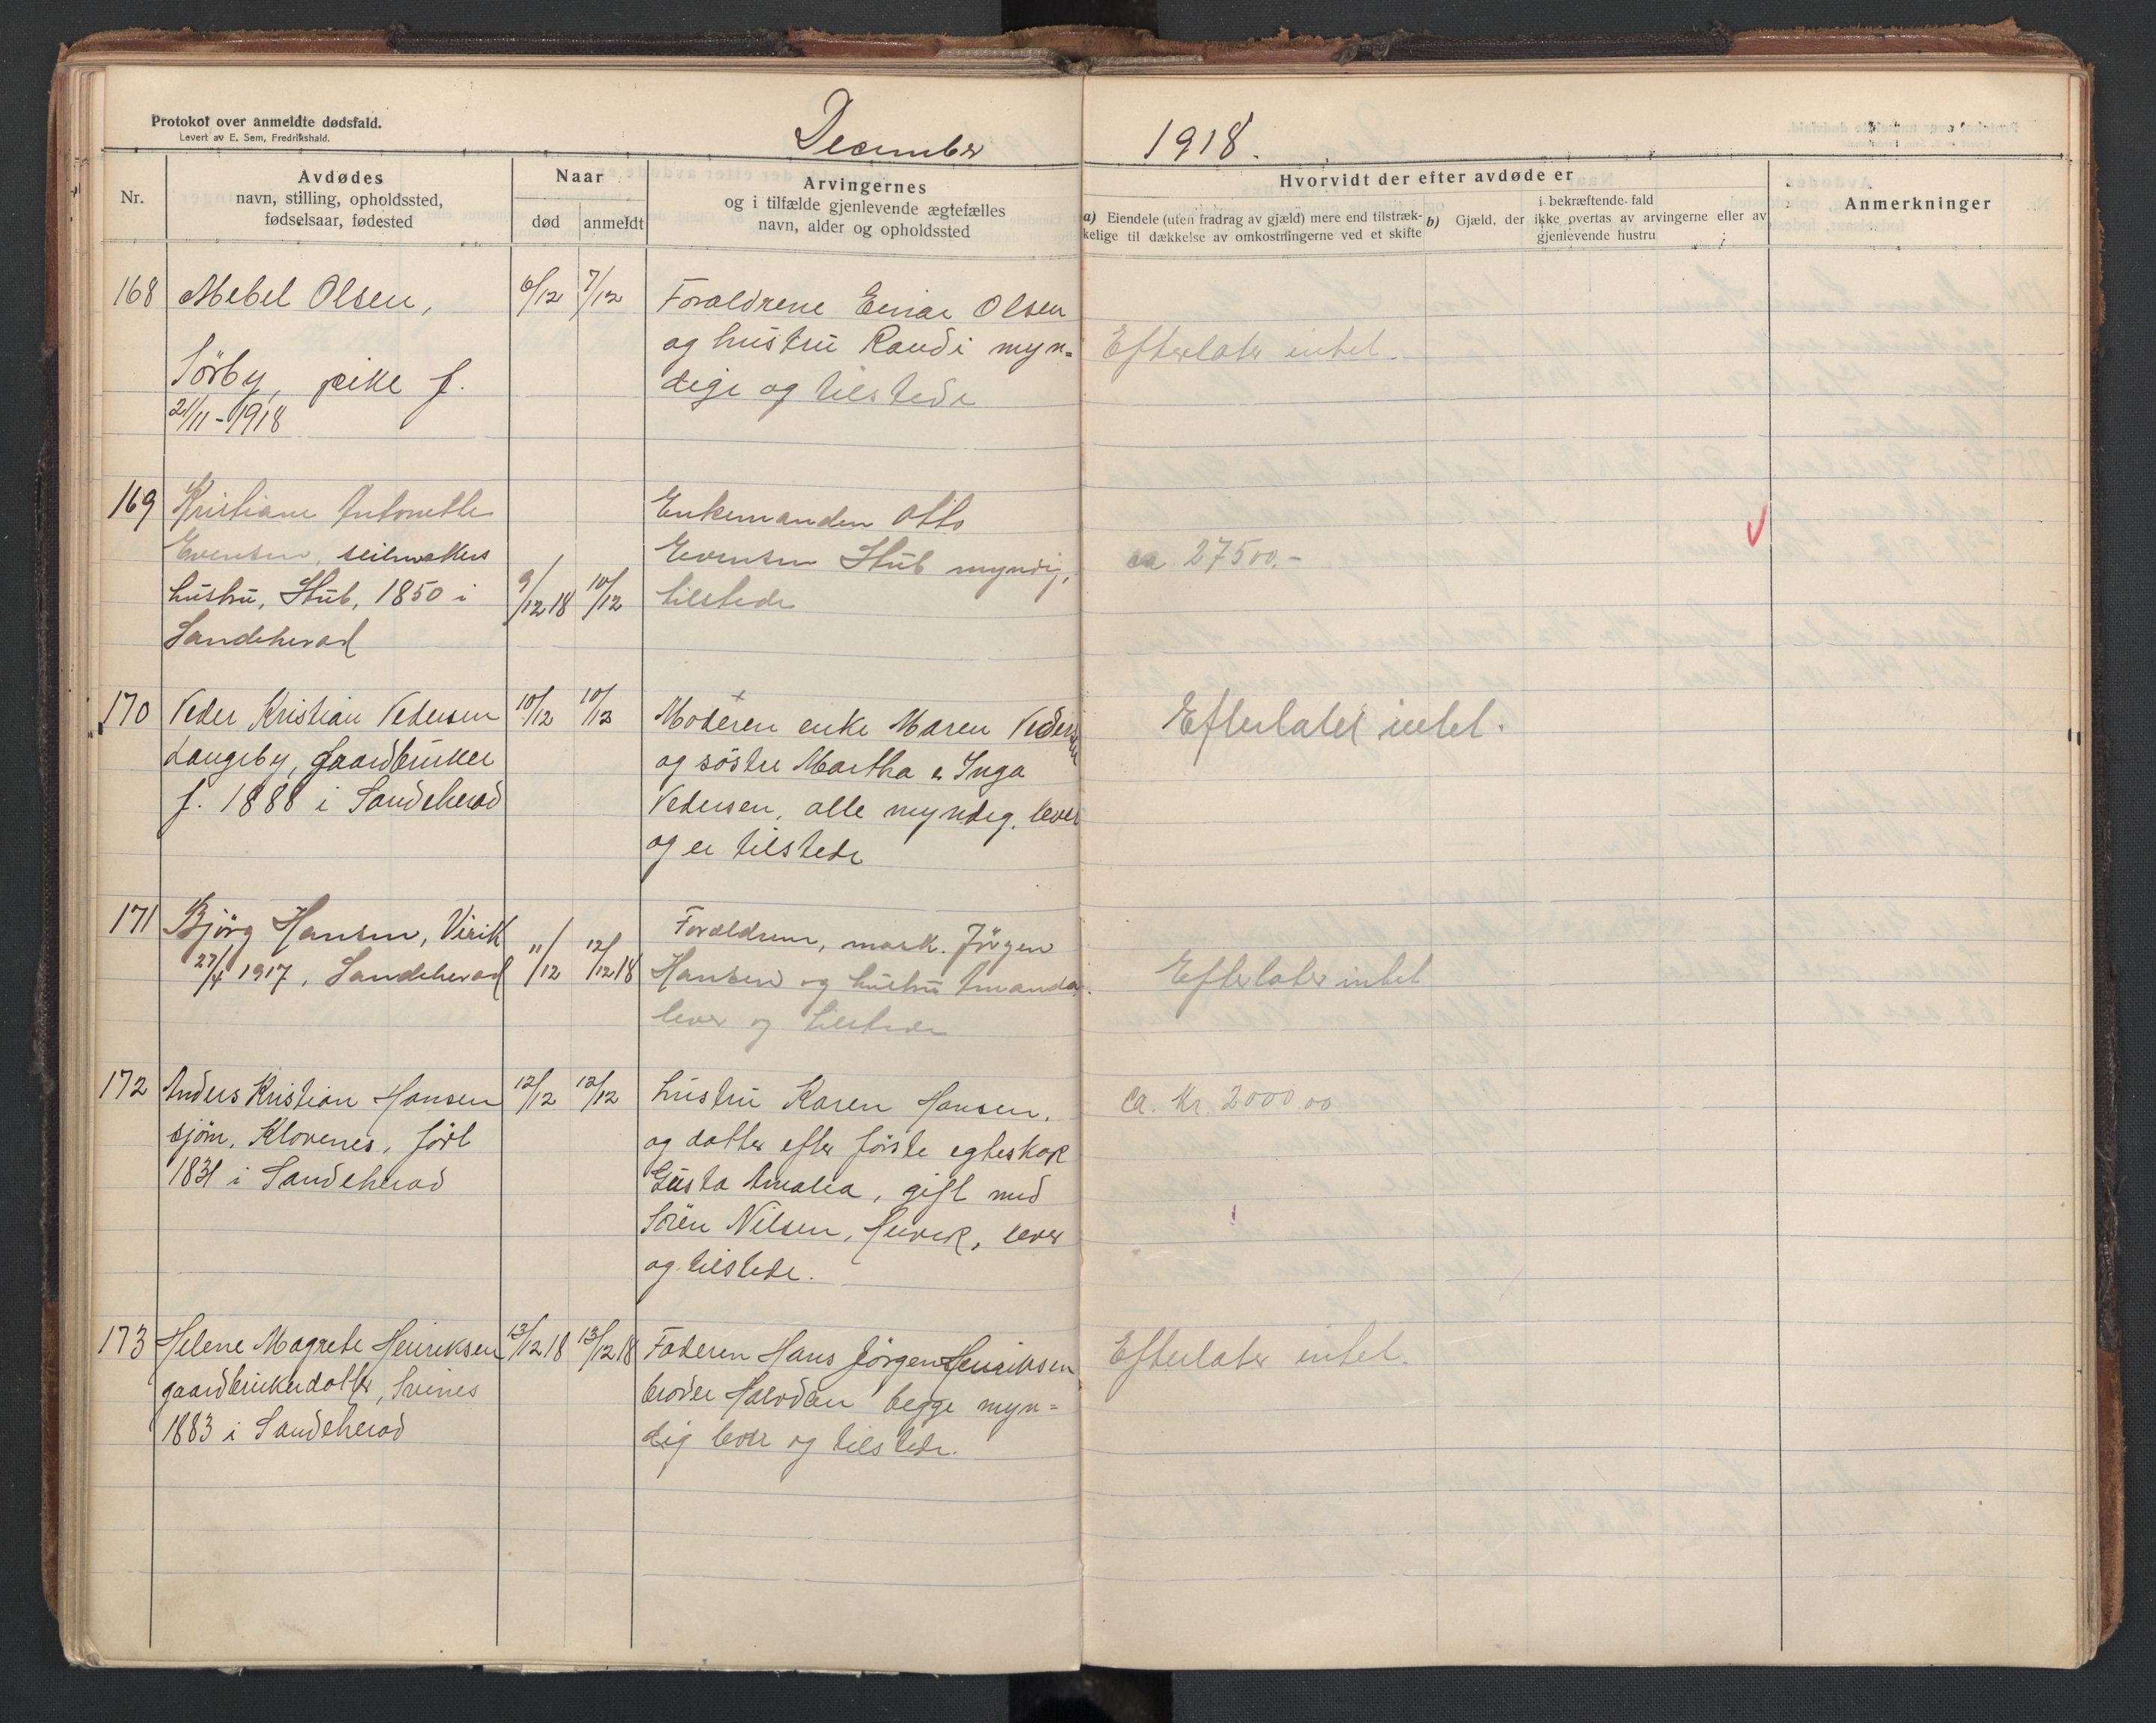 Protokol over anmeldte dødsfald.
Levert av E. Sem, Fredrikshald.
December 1918.
Nr.
Avdødes
navn, stilling, opholdssted,
fødselsaar, fødested
Naar
død
anmeldt
Arvingernes
og i tilfælde gjenlevende ægtefælles
navn, alder og opholdssted
Hvorvidt der efter avdøde er
a) Eiendele (uten fradrag av gjæld) mere end tilstræk-
kelige til dækkelse av omkostningerne ved et skifte
i bekræftende fald
b) Gjæld, der ikke overtas av arvingerne eller av
gjenlevende hustru
Anmerkninger
168
Mebel Olsen,
Sørby, pike f.
21/11-1918
6/12
7/12
Forældrene Einar Olsen
og hustru Randi myn=
dige og tilstede
Efterlater intet.
169
Kristiane Antonette
Evensen, seilmakers
hustru, Stub, 1850 i
Sandeherad
9/12 18
10/12
Enkemanden Otto
Evensen Stub myndig,
tilstede
ca 27500.-
170
Peder Kristian Pedersen
Langeby, gaardbruker
f. 1888 i Sandeherad
10/12
10/12
Moderen enke Maren Pedersen
og søstre Martha & Inga
Pedersen, alle myndig, lever
og er tilstede
Efterlatet intet.
171
Bjørg Hansen, Virik
27/4 1917, Sandeherad
11/12
12/12 18
Forældrene, mask. Jørgen
Hansen og hustru Amanda,
lever og tilstede
Efterlater intet
172
Anders Kristian Hansen
sjøm, Klovenes, født
1831 i Sandeherad
12/12
12/12
hustru Karen Hansen,
og datter efter første egteskap
Gusta Amalia, gift med
Sören Nilsen, lever
og tilstede.
ca. Kr. 2000 00
173
Helene Magrete Henriksen
gaardbrukerdatter, Svines
1883 i Sandeherad
13/12 18
13/12 18
Faderen Hans Jörgen Henriksen
broder Halvdan begge myn=
dig lever og tilstede.
Efterlater intet.